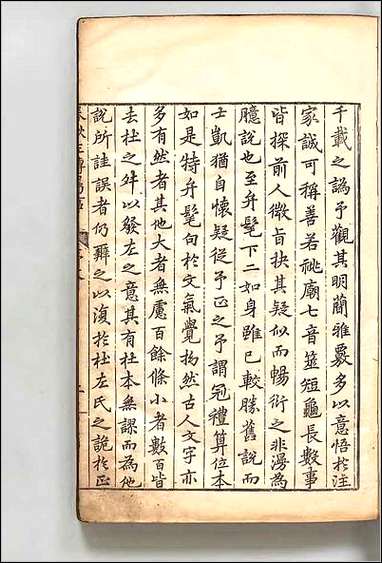 千載之譌予觀其明蘭雅覈多以意悟於注
家誠可稱善若祧廟七音筮短龜長數事
皆探前人微旨抉其疑似而暢衍之非漫為
臆說也至弁髦下二如身雖已較勝舊說而
士凱猶自懷疑從予正之予謂冠禮筭位本
如是特弁髦句於文氣覺拗然古人文字亦
多有然者其他大者無慮百餘條小者數百皆
去杜之舛以發左之意其有杜本無謬而為他
說所詿誤者仍辭之以復於杜左氏之詭於正